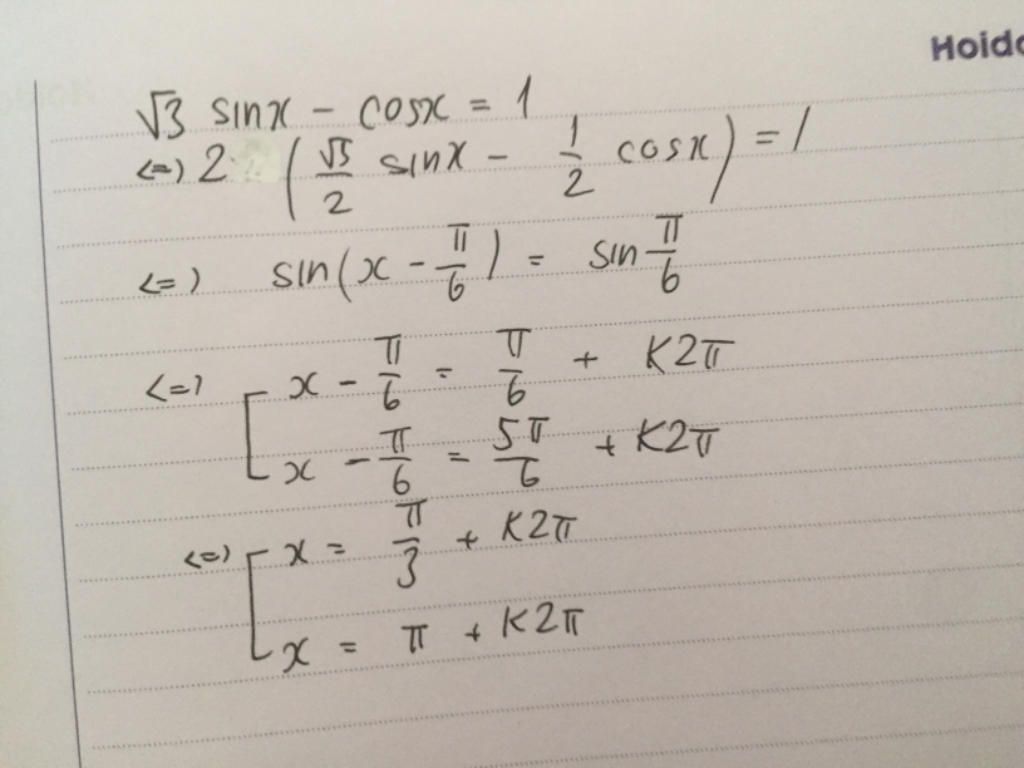 Hoido
√3 sinx - cosx = 1
<=> 2 (√3/2 sinx - 1/2 cosx) = 1
<=> sin(x - π/6) = sin π/6
<=> [ x - π/6 = π/6 + K2π
x - π/6 = 5π/6 + K2π
<=> [ x = π/3 + K2π
x = π + K2π